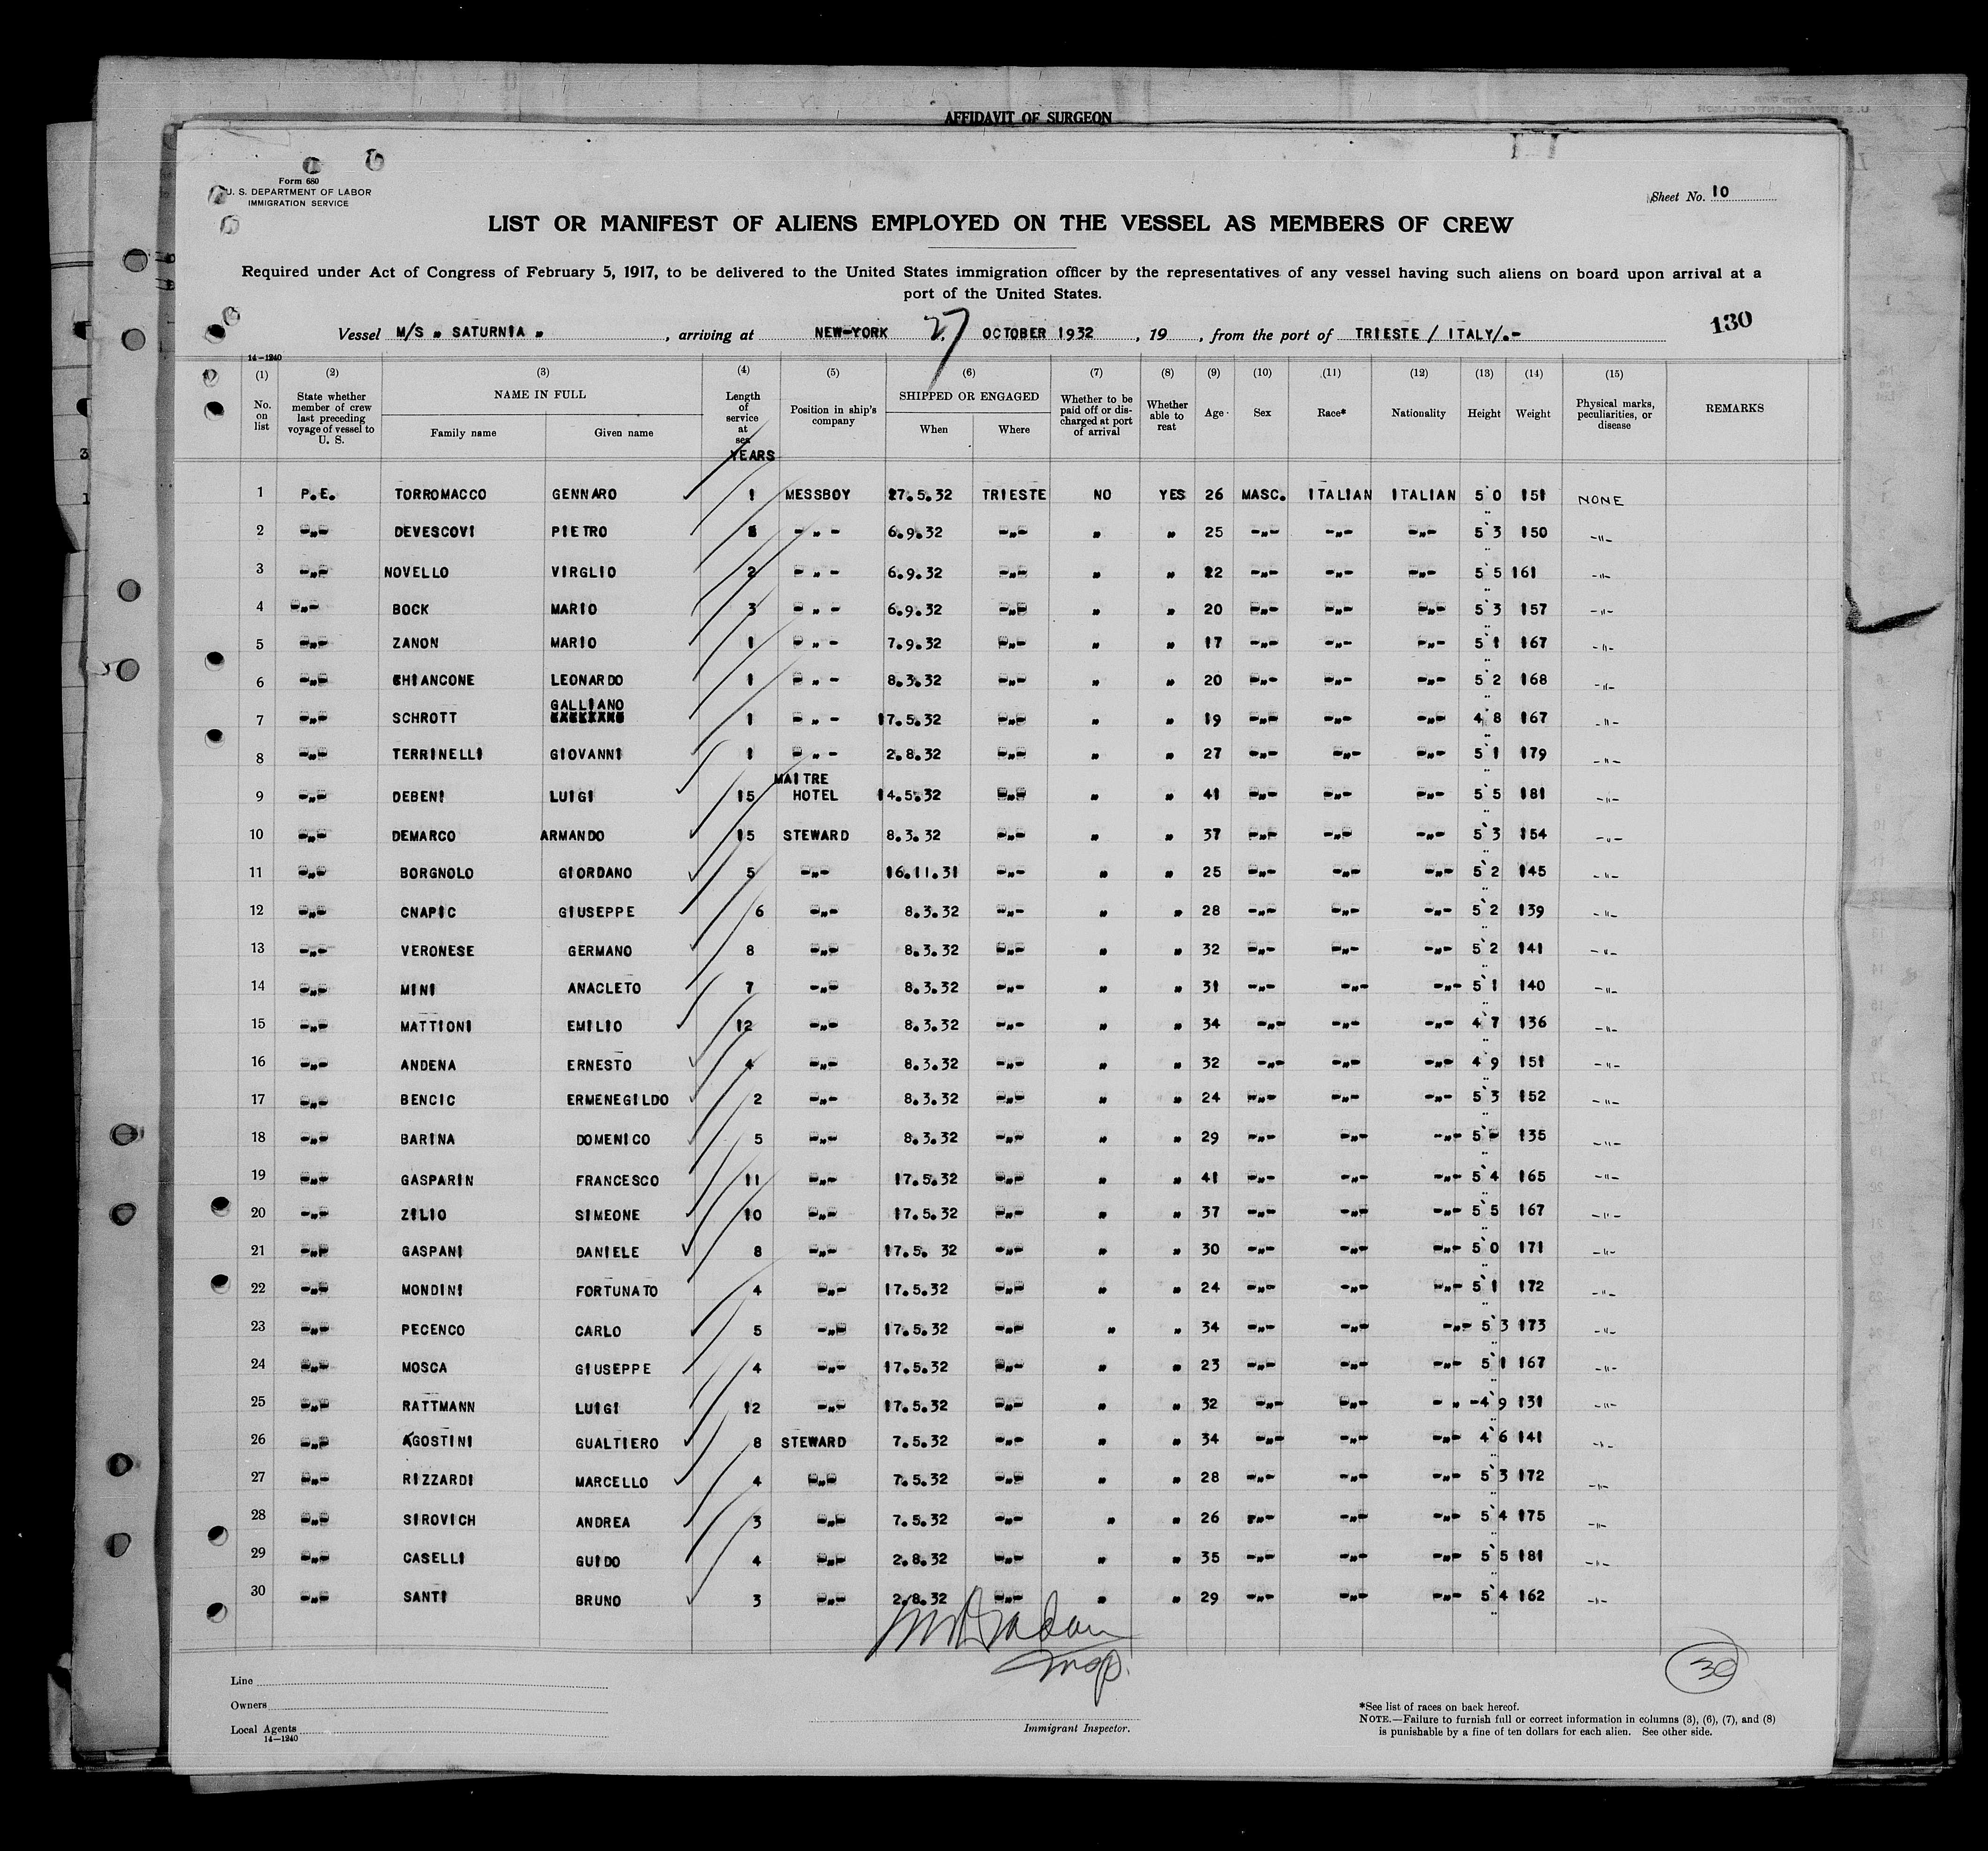 AFFIDAVIT OF SURGEON
Form 680
U. S. DEPARTMENT OF LABOR
IMMIGRATION SERVICE
Sheet No. 10
LIST OR MANIFEST OF ALIENS EMPLOYED ON THE VESSEL AS MEMBERS OF CREW
Required under Act of Congress of February 5, 1917, to be delivered to the United States immigration officer by the representatives of any vessel having such aliens on board upon arrival at a
port of the United States.
130
Vessel M/S " SATURNIA " , arriving at NEW-YORK 27 OCTOBER 1932 , 19 , from the port of TRIESTE / ITALY/.-
14-1240
(1) No. on list (2) State whether member of crew last preceding voyage of vessel to U. S. (3) NAME IN FULL Family name Given name (4) Length of service at sea YEARS (5) Position in ship's company (6) SHIPPED OR ENGAGED When Where (7) Whether to be paid off or discharged at port of arrival (8) Whether able to reat (9) Age (10) Sex (11) Race* (12) Nationality (13) Height (14) Weight (15) Physical marks, peculiarities, or disease REMARKS
1 P.E. TORROMACCO GENNARO 1 MESSBOY 27.5.32 TRIESTE NO YES 26 MASC. ITALIAN ITALIAN 5 0 151 NONE
2 -"- DEVESCOVI PIETRO - " - 6.9.32 -"- " " 25 -"- -"- -"- 5 3 150 -"-
3 -"- NOVELLO VIRGLIO 2 - " - 6.9.32 -"- " " 22 -"- -"- -"- 5 5 161 -"-
4 -"- BOCK MARIO 3 - " - 6.9.32 -"- " " 20 -"- -"- -"- 5 3 157 -"-
5 -"- ZANON MARIO 1 - " - 7.9.32 -"- " " 17 -"- -"- -"- 5 1 167 -"-
6 -"- CHIANCONE LEONARDO 1 - " - 8.3.32 -"- " " 20 -"- -"- -"- 5 2 168 -"-
7 -"- SCHROTT GALLIANO 1 - " - 17.5.32 -"- " " 19 -"- -"- -"- 4 8 167 -"-
8 -"- TERRINELLI GIOVANNI 1 - " - 2.8.32 -"- " " 27 -"- -"- -"- 5 1 179 -"-
9 -"- DEBENI LUIGI 15 MAITRE HOTEL 14.5.32 -"- " " 41 -"- -"- -"- 5 5 181 -"-
10 -"- DEMARCO ARMANDO 15 STEWARD 8.3.32 -"- " " 37 -"- -"- -"- 5 3 154 -"-
11 -"- BORGNOLO GIORDANO 5 -"- 16.11.31 -"- " " 25 -"- -"- -"- 5 2 145 -"-
12 -"- CNAPIC GIUSEPPE 6 -"- 8.3.32 -"- " " 28 -"- -"- -"- 5 2 139 -"-
13 -"- VERONESE GERMANO 8 -"- 8.3.32 -"- " " 32 -"- -"- -"- 5 2 141 -"-
14 -"- MINI ANACLETO 7 -"- 8.3.32 -"- " " 31 -"- -"- -"- 5 1 140 -"-
15 -"- MATTIONI EMILIO 12 -"- 8.3.32 -"- " " 34 -"- -"- -"- 4 7 136 -"-
16 -"- ANDENA ERNESTO 4 -"- 8.3.32 -"- " " 32 -"- -"- -"- 4 9 151 -"-
17 -"- BENCIC ERMENEGILDO 2 -"- 8.3.32 -"- " " 24 -"- -"- -"- 5 3 152 -"-
18 -"- BARINA DOMENICO 5 -"- 8.3.32 -"- " " 29 -"- -"- -"- 5 - 135 -"-
19 -"- GASPARIN FRANCESCO 11 -"- 17.5.32 -"- " " 41 -"- -"- -"- 5 4 165 -"-
20 -"- ZILIO SIMEONE 10 -"- 17.5.32 -"- " " 37 -"- -"- -"- 5 5 167 -"-
21 -"- GASPANI DANIELE 8 -"- 17.5. 32 -"- " " 30 -"- -"- -"- 5 0 171 -"-
22 -"- MONDINI FORTUNATO 4 -"- 17.5.32 -"- " " 24 -"- -"- -"- 5 1 172 -"-
23 -"- PECENCO CARLO 5 -"- 17.5.32 -"- " " 34 -"- -"- -"- 5 3 173 -"-
24 -"- MOSCA GIUSEPPE 4 -"- 17.5.32 -"- " " 23 -"- -"- -"- 5 1 167 -"-
25 -"- RATTMANN LUIGI 12 -"- 17.5.32 -"- " " 32 -"- -"- - " - 4 9 131 -"-
26 -"- AGOSTINI GUALTIERO 8 STEWARD 7.5.32 -"- " " 34 -"- -"- -"- 4 6 141 -"-
27 -"- RIZZARDI MARCELLO 4 -"- 7.5.32 -"- " " 28 -"- -"- -"- 5 3 172 -"-
28 -"- SIROVICH ANDREA 3 -"- 7.5.32 -"- " " 26 -"- -"- -"- 5 4 175 -"-
29 -"- CASELLI GUIDO 4 -"- 2.8.32 -"- " " 35 -"- -"- -"- 5 5 181 -"-
30 -"- SANTI BRUNO 3 -"- 2.8.32 -"- " " 29 -"- -"- -"- 5 4 162 -"-
Insp.
30
Line
Owners
Local Agents
14-1240
Immigrant Inspector.
*See list of races on back hereof.
NOTE.—Failure to furnish full or correct information in columns (3), (6), (7), and (8)
is punishable by a fine of ten dollars for each alien. See other side.